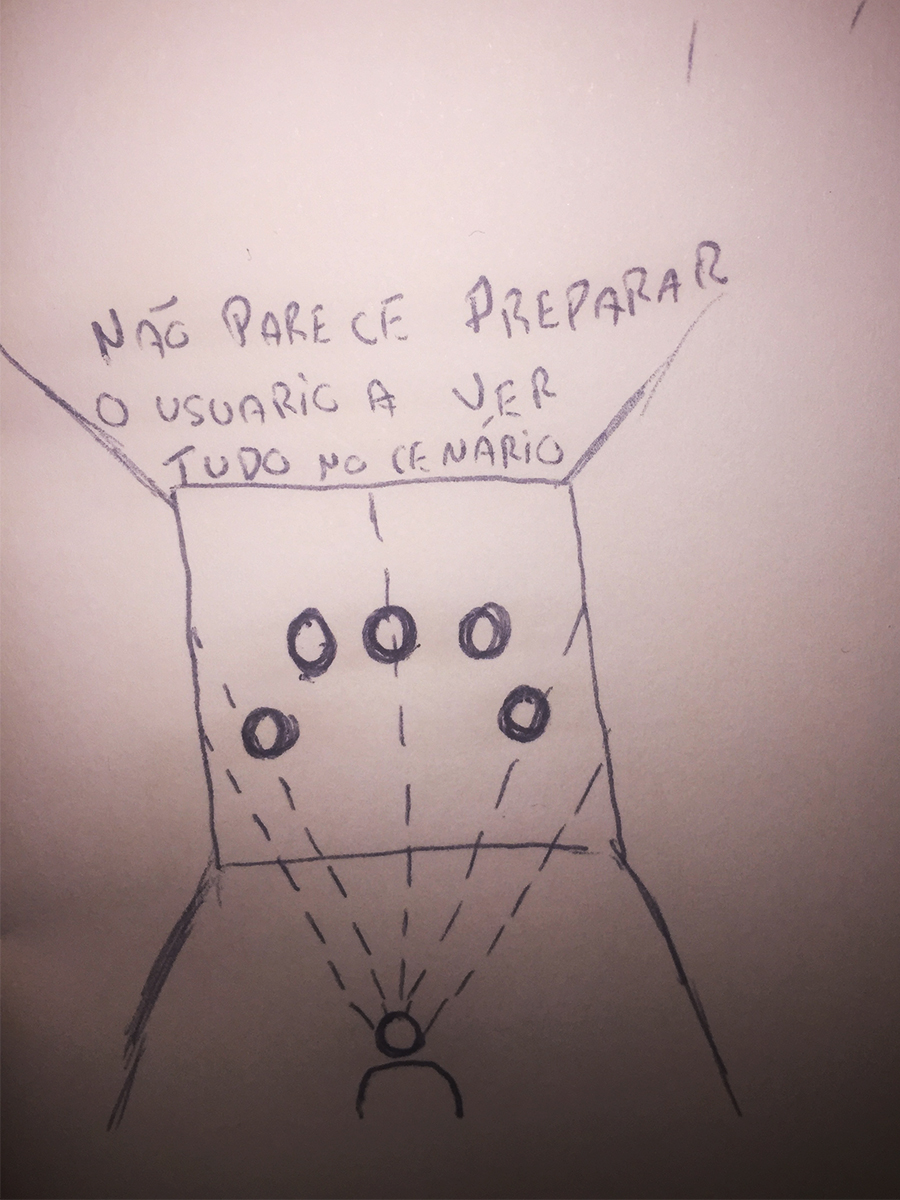 NÃO PARECE PREPARAR
O USUARIO A VER
TUDO NO CENÁRIO